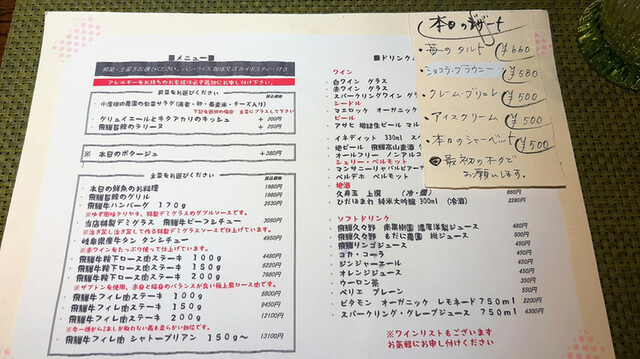 ■メニュー■
前菜・主菜をお選びください。パン/ライス 珈琲又はルイボスティー付き
アレルギーをお持ちのお客様は必ず最初にお申し付け下さい。
前菜をお選びください
下記を前菜の場合 主菜にプラスして下さい
グリュイエールとキタアカリのキッシュ + 200円
飛騨旨豚のテリーヌ + 250円
※ 本日のポタージュ +380円
主菜をお選びください
本日の鮮魚のお料理 1980円
飛騨旨豚のグリル 1980円
飛騨牛ハンバーグ 170g 2530円
※ゆず風味テリヤキ、特製デミグラスのダブルソースです。
当店特製デミグラス 飛騨牛ビーフシチュー 3080円
※注ぎ足し注ぎ足しで作る特製デミグラスソースで仕上げています。
岐阜県産牛タン タンシチュー 4950円
※赤ワインをたっぷり使って仕上げています。
飛騨牛鞍下ロース肉ステーキ 100g 4480円
飛騨牛鞍下ロース肉ステーキ 150g 6220円
飛騨牛鞍下ロース肉ステーキ 200g 7980円
※ザブトンを使用、赤身と脂身のバランスが良い極上肩ロース肉です。
飛騨牛フィレ肉ステーキ 100g 6800円
飛騨牛フィレ肉ステーキ 150g 9450円
飛騨牛フィレ肉ステーキ 200g 12100円
※牛一頭から2本しか取れない最も柔らかい部位です。
飛騨牛フィレ肉 シャトーブリアン 150g~ 13100円
■ドリンク
ワイン
白ワイン グラス
赤ワイン グラス
スパークリングワイン グラス
シードル
マエロック オーガニック
ビール
アサヒ 樽詰生ビール
イネディット 330ml
地ビール 飛騨高山麦酒
オールフリー ノンアルコ
シェリー・ベルモット
マンサニーリャパピルーサ
ベルデホ ベルモット
地酒
久寿玉 上撰 (冷・燗) 880円
ひだほまれ 純米大吟醸 300ml (冷酒) 2290円
ソフトドリンク
飛騨久々野 南果樹園 濃厚洋梨ジュース 480円
飛騨久々野 もだに農園 桃ジュース 500円
飛騨リンゴジュース 450円
コカ・コーラ 450円
ジンジャーエール 450円
オレンジジュース 450円
ウーロン茶 350円
ペリエ プレーン 550円
ビタモン オーガニック レモネード 750ml 2200円
スパークリング・グレープジュース 750ml 4300円
※ワインリストもございます
お気軽にお申し付けください
本日のデザート
・苺のタルト ¥660
・ショコラ・ブラウニー ¥580
・クレーム・ブリュレ ¥500
・アイスクリーム ¥500
・本日のシャーベット ¥500
最初のオーダーで
お願いします。